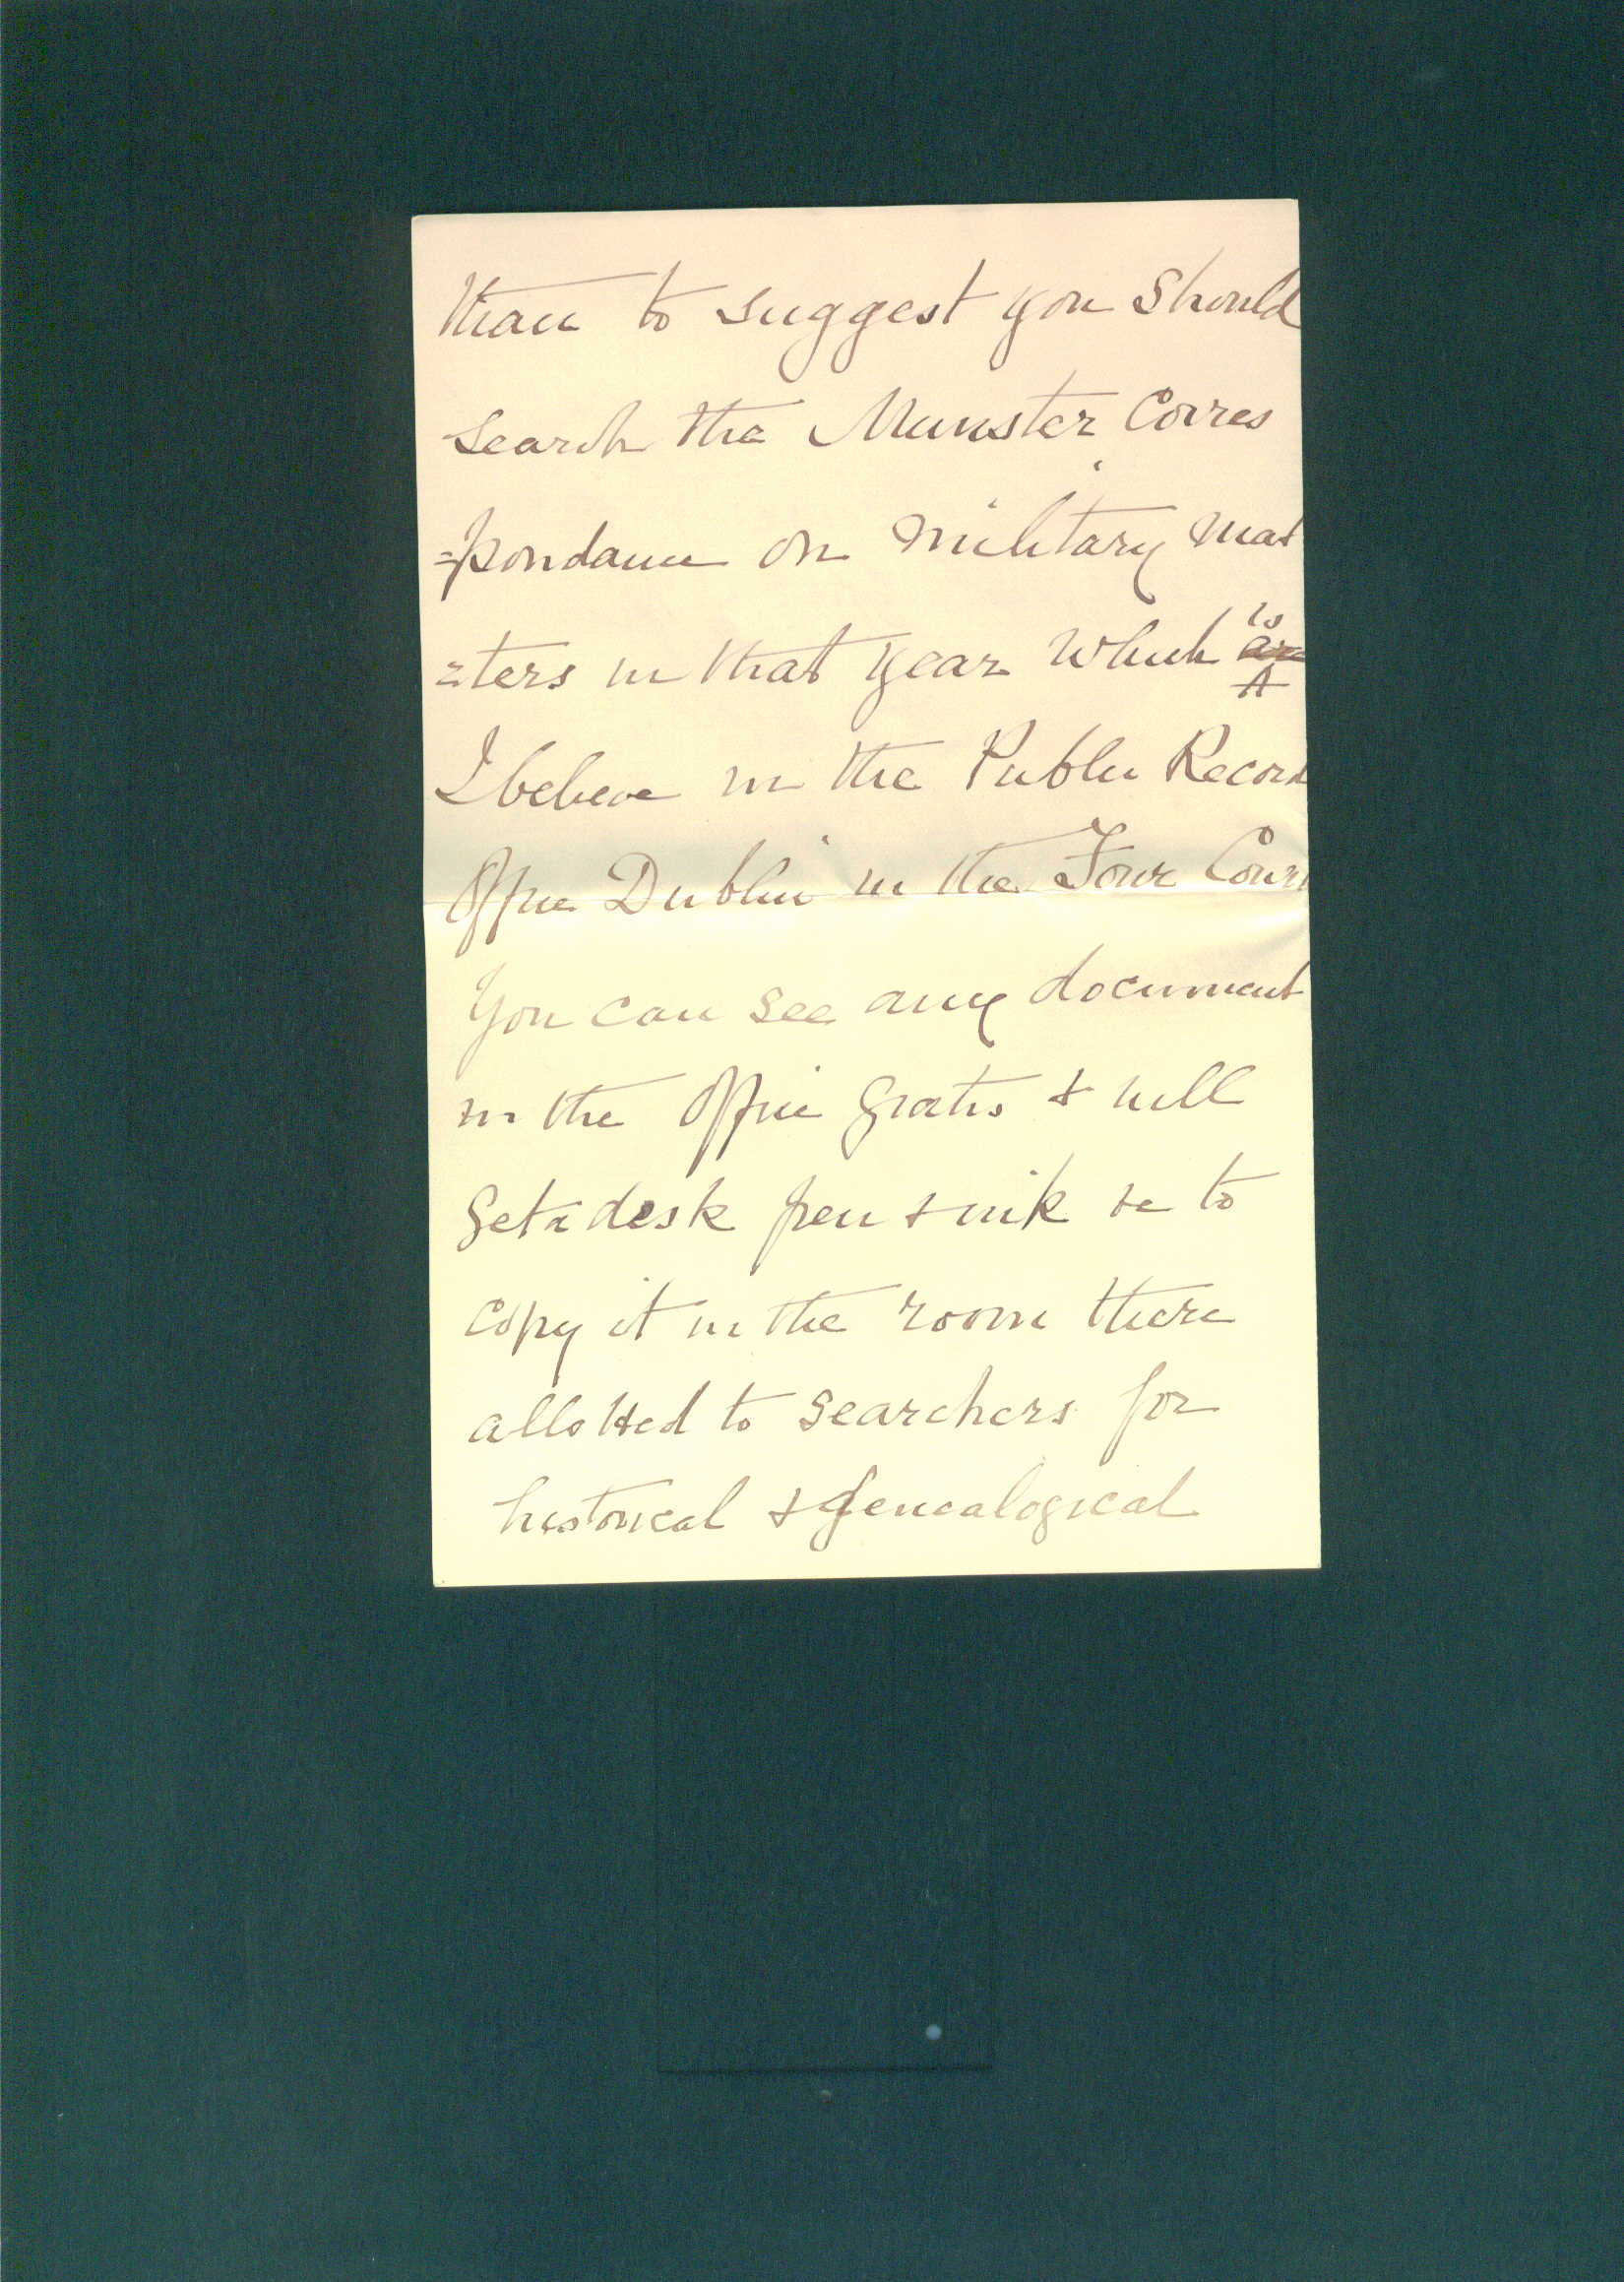 than to suggest you should
search the Munster Corres
=pondance on military mat
=ters in that year which is are
I believe in the Public Record
Office Dublin in the Four Cour
You can see any document
in the Office gratis & will
get a desk pen & ink &c to
copy it in the room there
allotted to searchers for
historical & genealogical